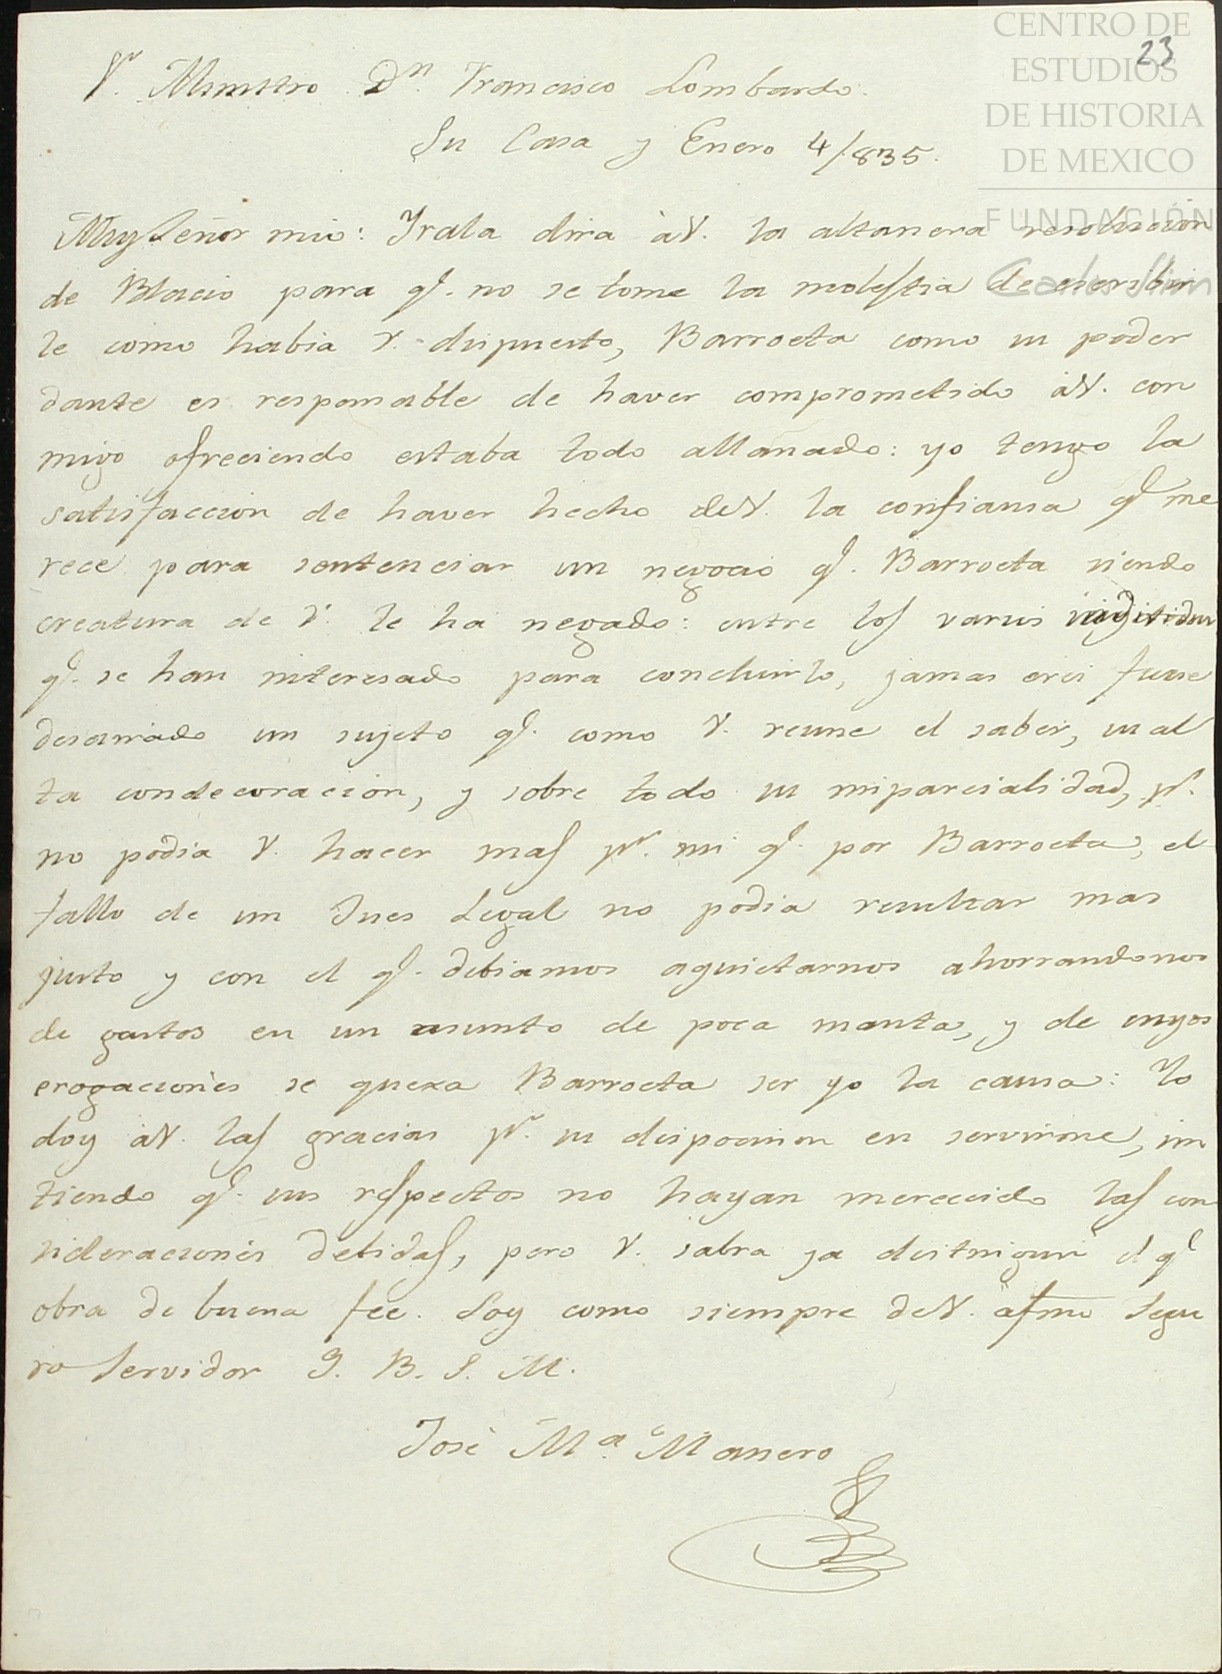 CENTRO DE
ESTUDIOS
DE HISTORIA
DE MEXICO
FUNDACIÓN
Carlos Slim
23
Sr. Ministro Dn. Francisco Lombardo.
Su Casa y Enero 4/835.
Muy Señor mio: Irala dira à V. la altanera resolucion
de Blacio para q. no se tome la molestia de escribir
le como habia V. dispuesto, Barroeta como su poder
dante es responsable de haver comprometido à V. con
migo ofreciendo estaba todo allanado: yo tengo la
satisfaccion de haver hecho de V. la confiansa q. me
rece para sentenciar un negocio q. Barroeta siendo
creatura de V. le ha negado: entre los varios individuos
q. se han interesado para concluirlo, jamas crei fuese
desairado un sujeto q. como V. reune el saber, su al
ta condecoracion, y sobre todo su imparcialidad, pr.
no podia V. hacer mas pr. mi q. por Barroeta, el
fallo de un Jues Legal no podia resultar mas
justo y con el q. debiamos aquietarnos ahorrandonos
de gastos en un asunto de poca monta, y de cuyos
erogaciones se quexa Barroeta ser yo la causa: Yo
doy à V. las gracias pr. su disposicion en servirme, sin
tiendo q. sus respectos no hayan merecido las con
sideraciones debidas, pero V. sabra ya distinguir el q.
obra de buena fee. Soy como siempre de V. afmo Segu
ro Servidor Q. B. S. M.
José Ma. Manero